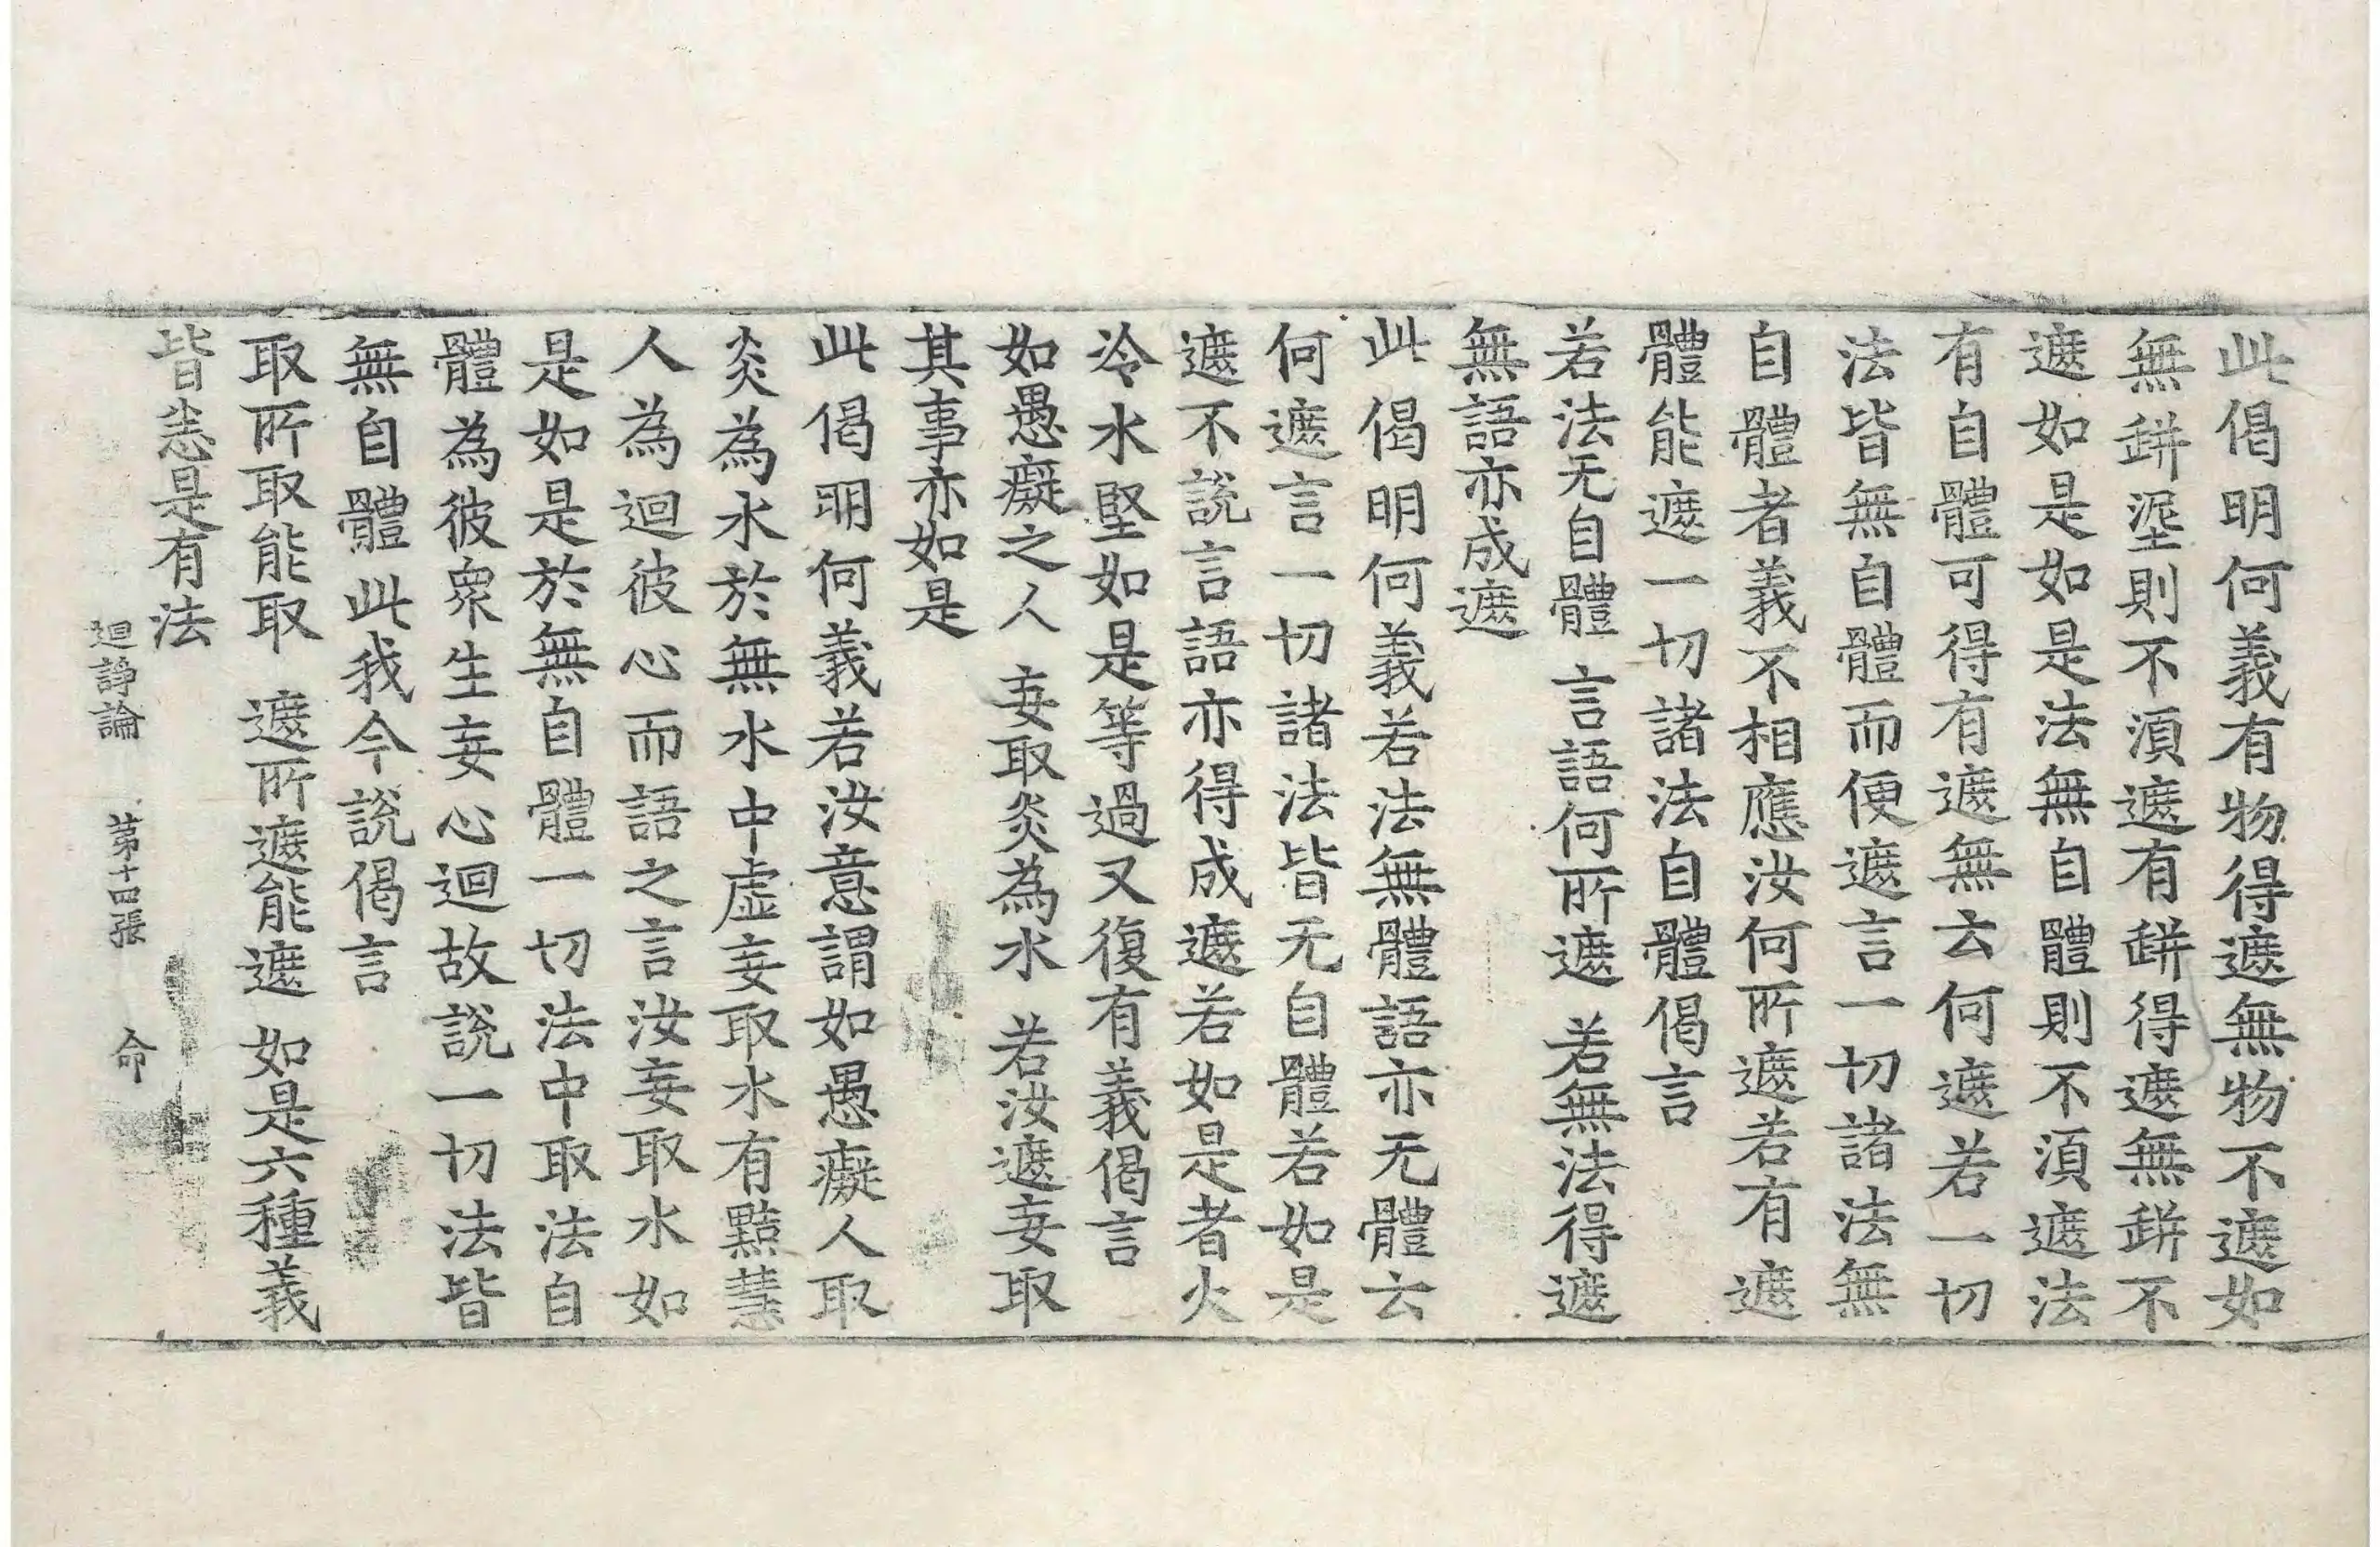 此偈明何義有物得遮無物不遮如
無缾埿則不湏遮有缾得遮無缾不
遮如是如是法無自體則不湏遮法
有自體可得有遮無云何遮若一切
法皆無自體而便遮言一切諸法無
自體者義不相應汝何所遮若有遮
體能遮一切諸法自體偈言
若法无自體 言語何所遮 若無法得遮
無語亦成遮
此偈明何義若法無體語亦无體云
何遮言一切諸法皆无自體若如是
遮不說言語亦得成遮若如是者火
冷水堅如是等過又復有義偈言
如愚癡之人 妄取炎為水 若汝遮妄取
其事亦如是
此偈明何義若汝意謂如愚癡人取
炎為水於無水中虛妄取水有黠慧
人為迴彼心而語之言汝妄取水如
是如是於無自體一切法中取法自
體為彼衆生妄心迴故說一切法皆
無自體此我今說偈言
取所取能取 遮所遮能遮 如是六種義
皆悉是有法
迴諍論 第十四張 命